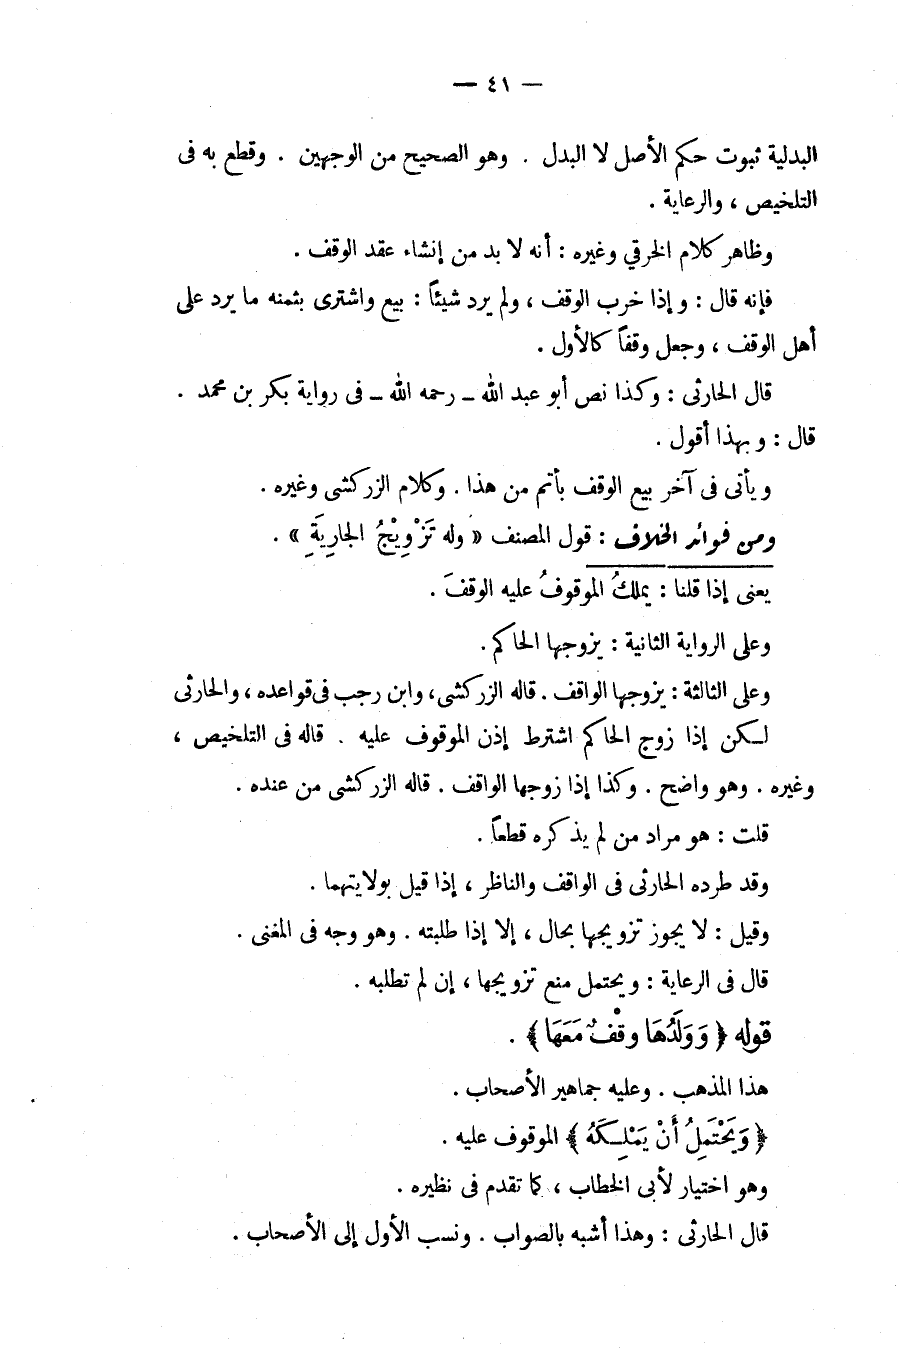 — ٤١ —
البدلية ثبوت حكم الأصل لا البدل . وهو الصحيح من الوجهين . وقطع به فى
التلخيص ، والرعاية .
وظاهر كلام الخرقي وغيره : أنه لا بد من إنشاء عقد الوقف .
فإنه قال : وإذا خرب الوقف ، ولم يرد شيئاً : بيع واشترى بثمنه ما يرد على
أهل الوقف ، وجعل وقفاً كالأول .
قال الحارثى : وكذا نص أبو عبد الله ـ رحمه الله ـ فى رواية بكر بن محمد .
قال : وبهذا أقول .
ويأتى فى آخر بيع الوقف بأتم من هذا . وكلام الزركشى وغيره .
ومن فوائد الخلاف : قول المصنف « وله تَزْوِيْجُ الجارِيَةِ » .
يعنى إذا قلنا : يملكُ الموقوفُ عليه الوقفَ .
وعلى الرواية الثانية : يزوجها الحاكم .
وعلى الثالثة : يزوجها الواقف . قاله الزركشى ، وابن رجب فى قواعده ، والحارثى
لـكن إذا زوج الحاكم اشترط إذن الموقوف عليه . قاله فى التلخيص ،
وغيره . وهو واضح . وكذا إذا زوجها الواقف . قاله الزركشى من عنده .
قلت : هو مراد من لم يذكره قطعاً .
وقد طرده الحارثى فى الواقف والناظر ، إذا قيل بولايتهما .
وقيل : لا يجوز تزويجها بحال ، إلا إذا طلبته . وهو وجه فى المغنى .
قال فى الرعاية : ويحتمل منع تزويجها ، إن لم تطلبه .
قوله ﴿ وَوَلَدُهَا وقْفٌ مَعَهَا ﴾ .
هذا المذهب . وعليه جماهير الأصحاب .
﴿ وَيَحْتَمِلُ أَنْ يَمْلِـكَهُ ﴾ الموقوف عليه .
وهو اختيار لأبى الخطاب ، كما تقدم فى نظيره .
قال الحارثى : وهذا أشبه بالصواب . ونسب الأول إلى الأصحاب .